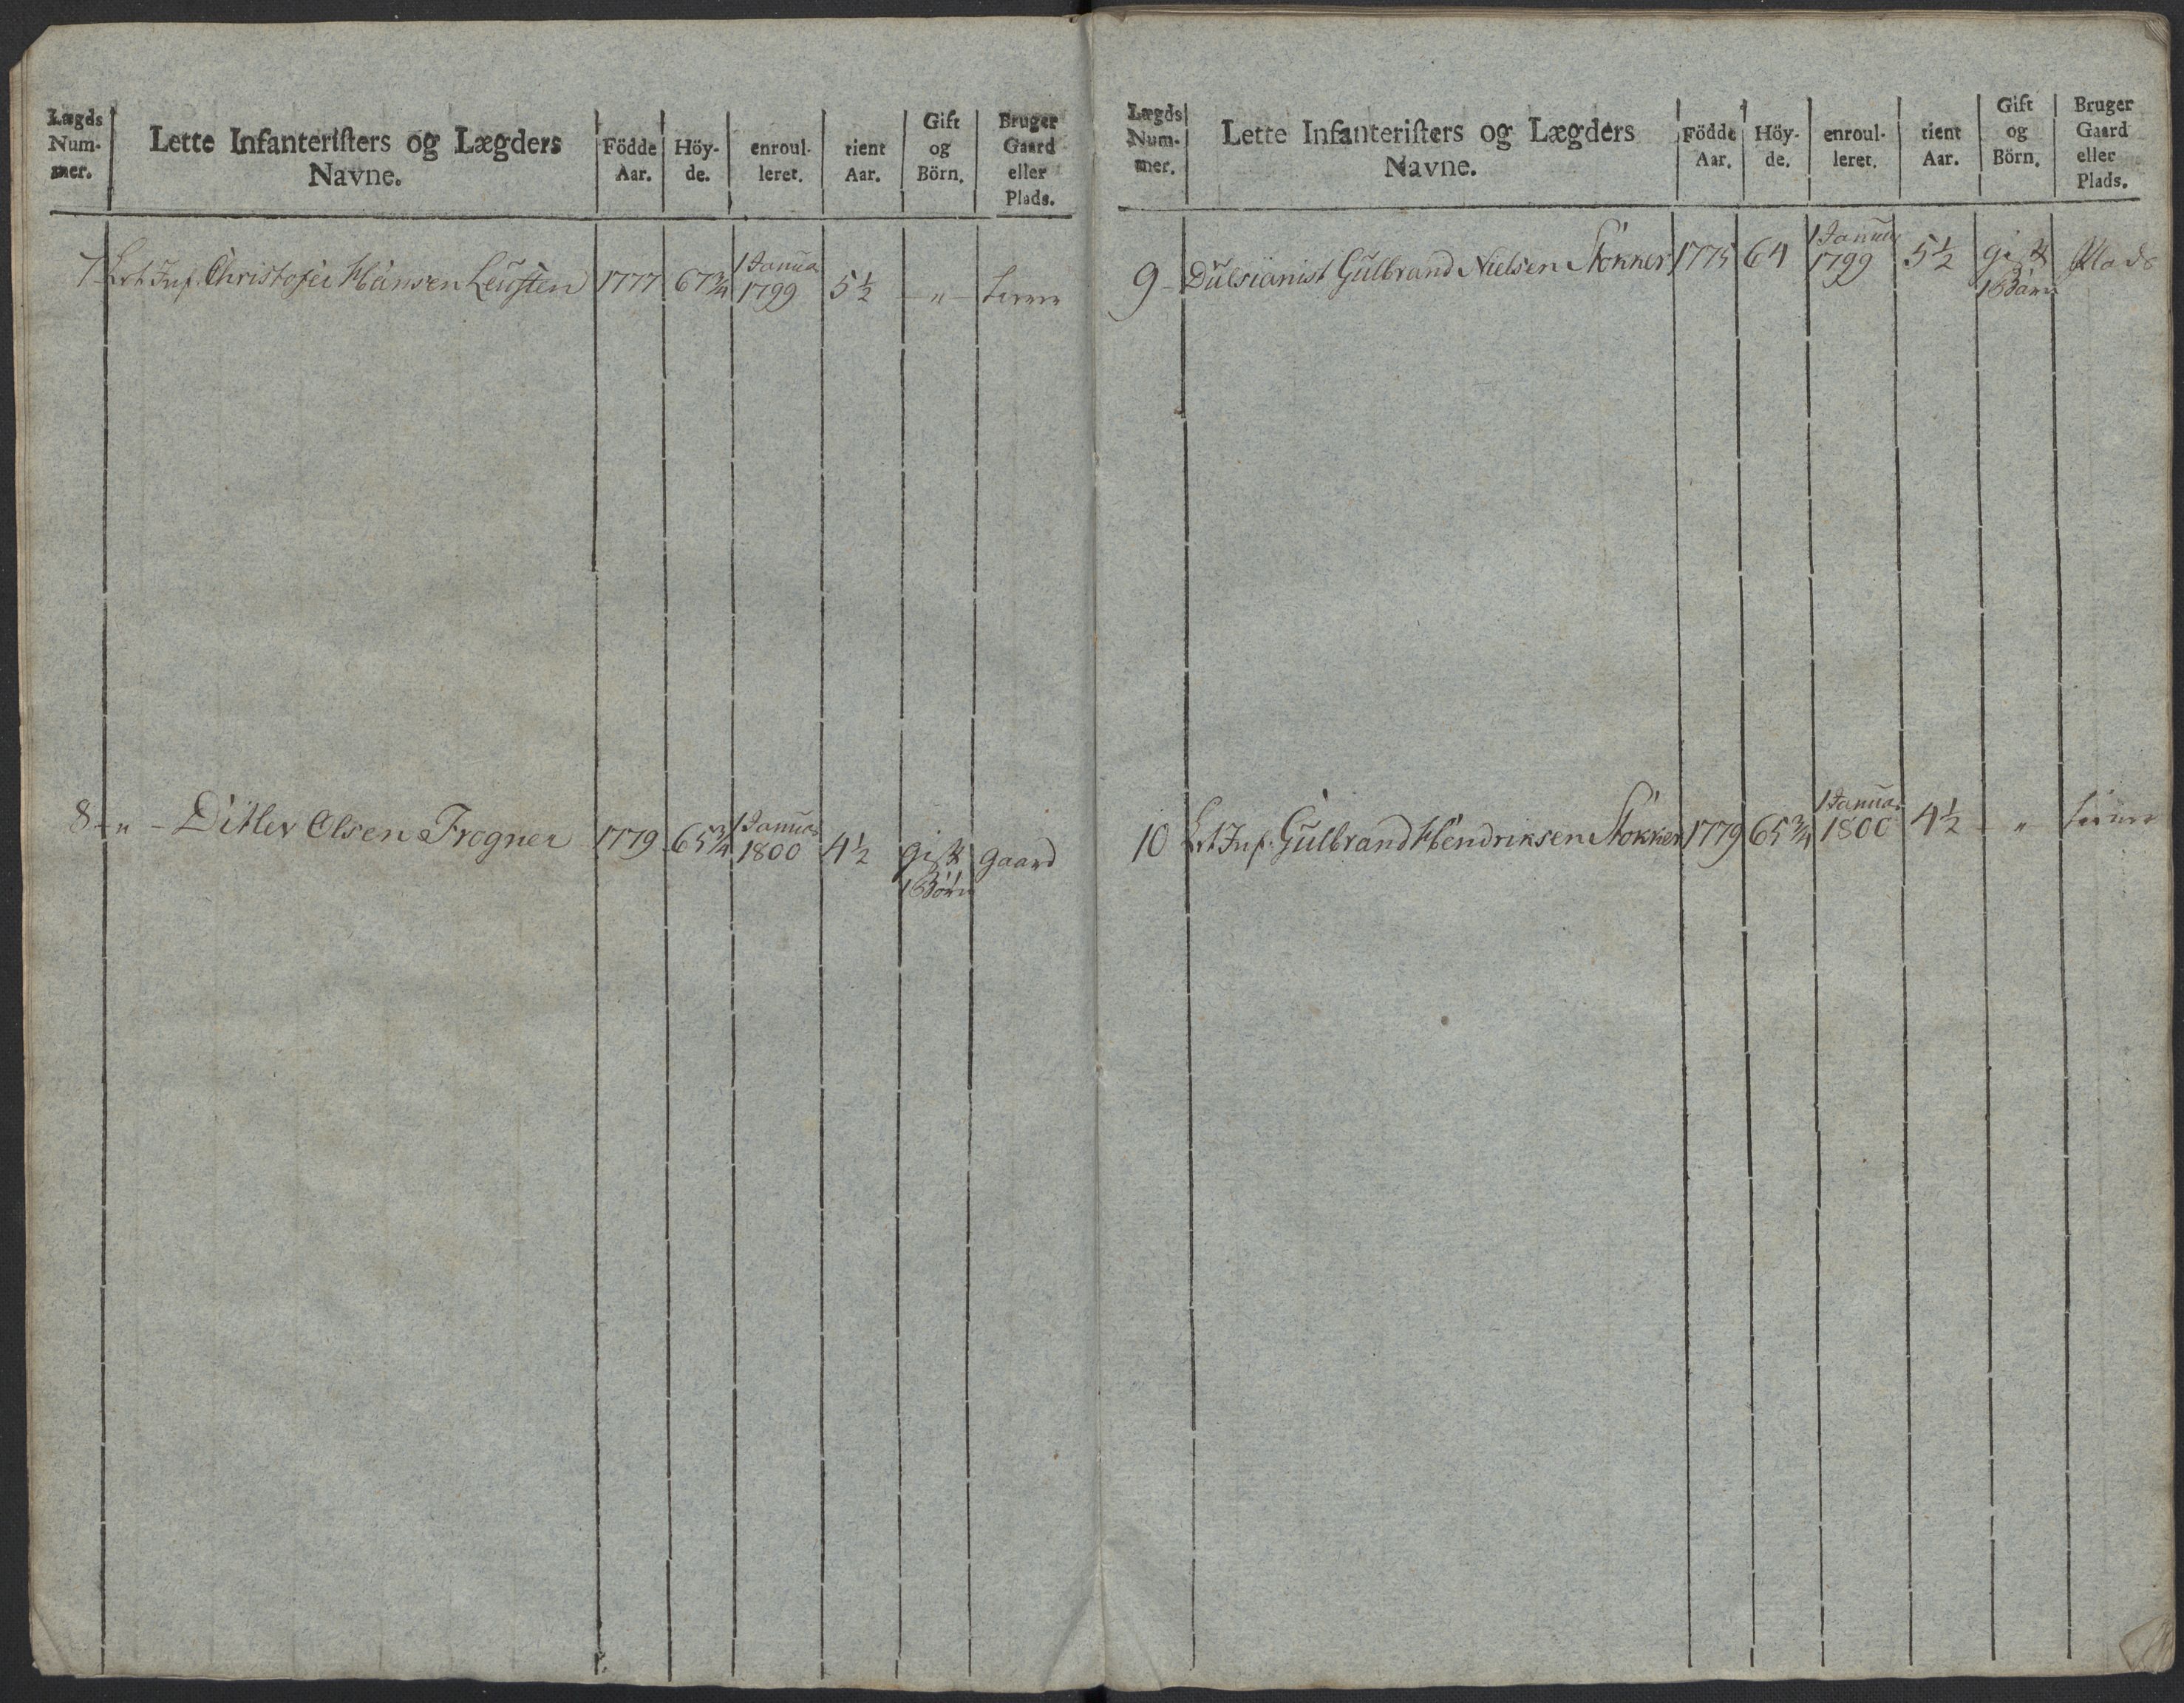 Lægds Num- mer.
Lette Infanteristers og Lægders Navne.
Födde Aar.
Höy- de.
enroul- leret.
tient Aar.
Gift og Börn.
Bruger Gaard eller Plads.
7 Let Inf. Christofer Hansen 1777 67¾ 1 Janua 1799 5½ — " —
8 — " — Ditlev Olsen Frogner 1779 65¾ 1 Janua 1800 4½ gift 1 Börn gaard
Lægds Num- mer.
Lette Infanteristers og Lægders Navne.
Födde Aar.
Höy- de.
enroul- leret.
tient Aar.
Gift og Börn.
Bruger Gaard eller Plads.
9 — Gulbrand Nielsen Stokker 1775 64 1 Janua 1799 5½ gift 1 Barn Plads
10 Let Inf. Gulbrand Hendriksen Stokker 1779 65¾ 1 Janua 1800 4½ — " —